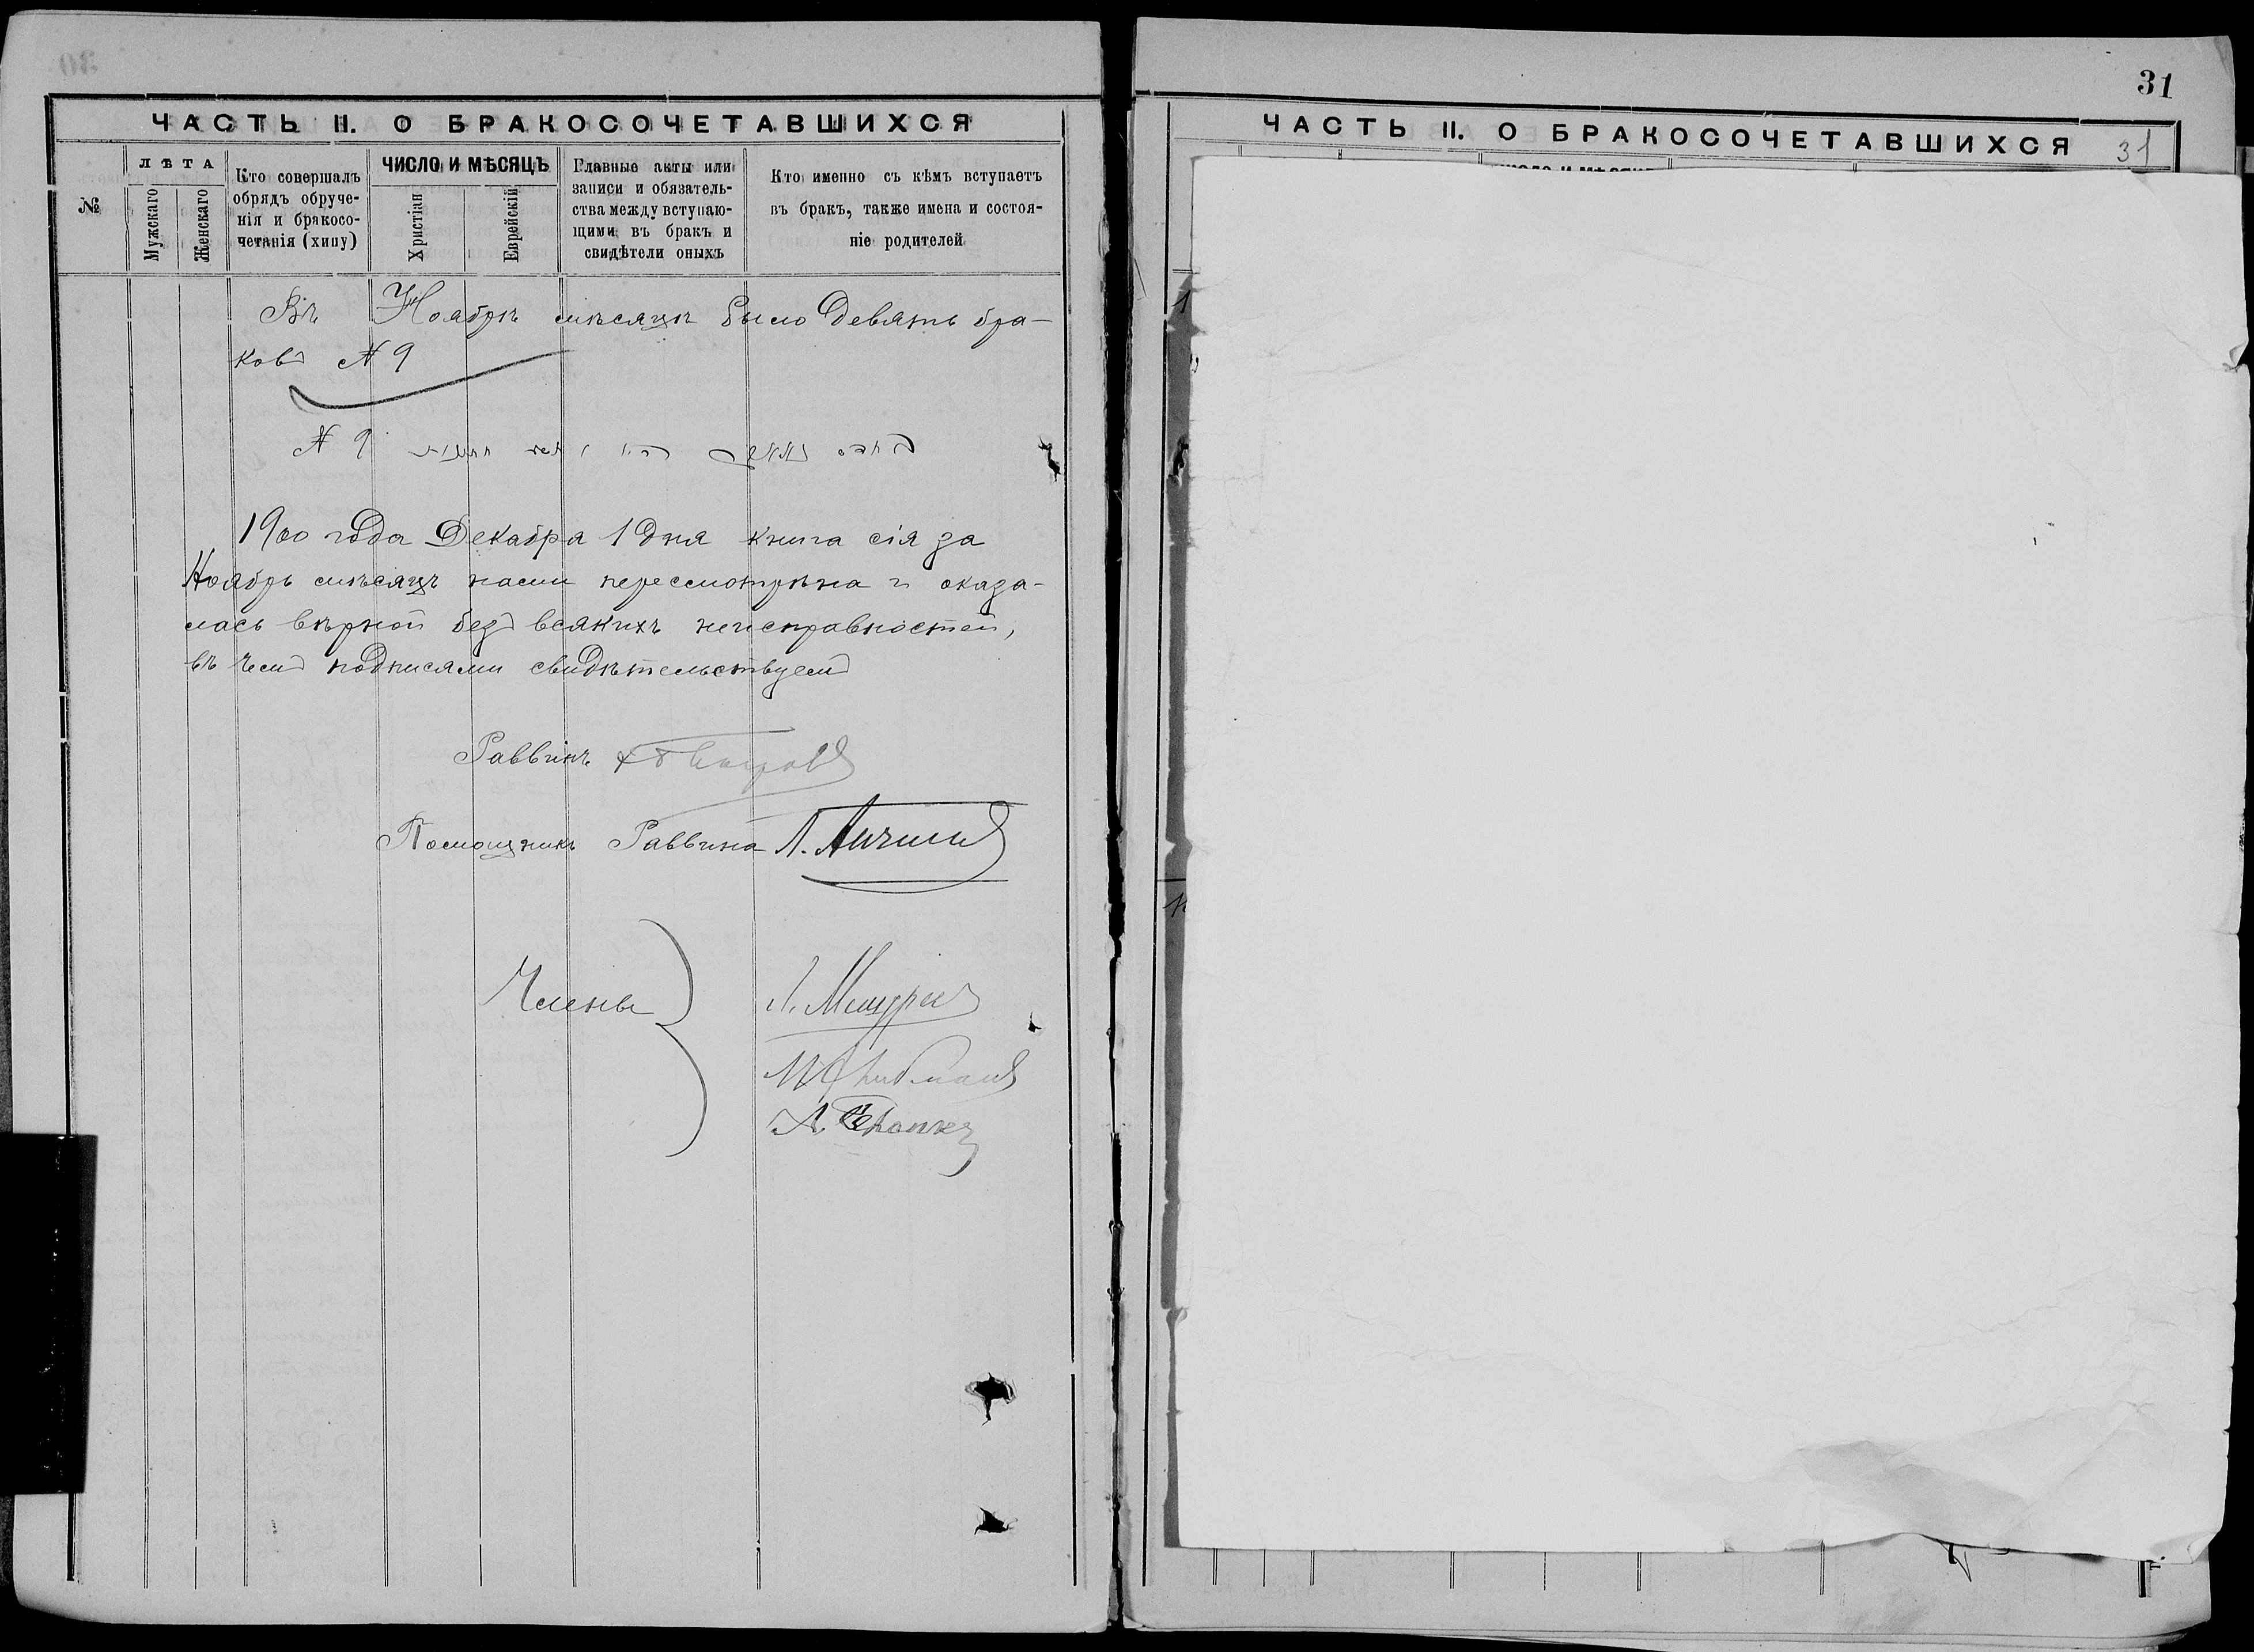 ЧАСТЬ II. О БРАКОСОЧЕТАВШИХСЯ
№
ЛѢТА
Мужскаго
Женскаго
Кто совершалъ
обрядъ обруче-
нія и бракосо-
четанія (хипу)
ЧИСЛО И МѢСЯЦЪ
Христіан
Еврейскій
Главные акты или
записи и обязатель-
ства между вступаю-
щими въ бракъ и
свидѣтели оныхъ
Кто именно съ кѣмъ вступаетъ
въ бракъ, также имена и состоя-
ніе родителей
Въ Ноябрѣ мѣсяцѣ было девять бра-
ковъ № 9
№ 9
1900 года Декабря 1 дня книга сія за
Ноябрь мѣсяцъ нами пересмотрѣна и оказа-
лась вѣрной безъ всякихъ неисправностей,
въ чемъ подписями свидѣтельствуемъ
Раввинъ
Помощникъ Раввина Л.
Члены
31
ЧАСТЬ II. О БРАКОСОЧЕТАВШИХСЯ
31